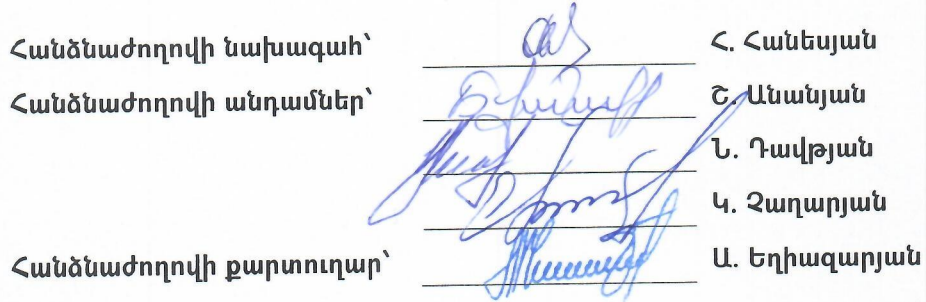 Հանձնաժողովի նախագահ՝ Հ. Հանեսյան
Հանձնաժողովի անդամներ՝ Շ. Անանյան
Ն. Դավթյան
Կ. Չաղարյան
Հանձնաժողովի քարտուղար՝ Ա. Եղիազարյան